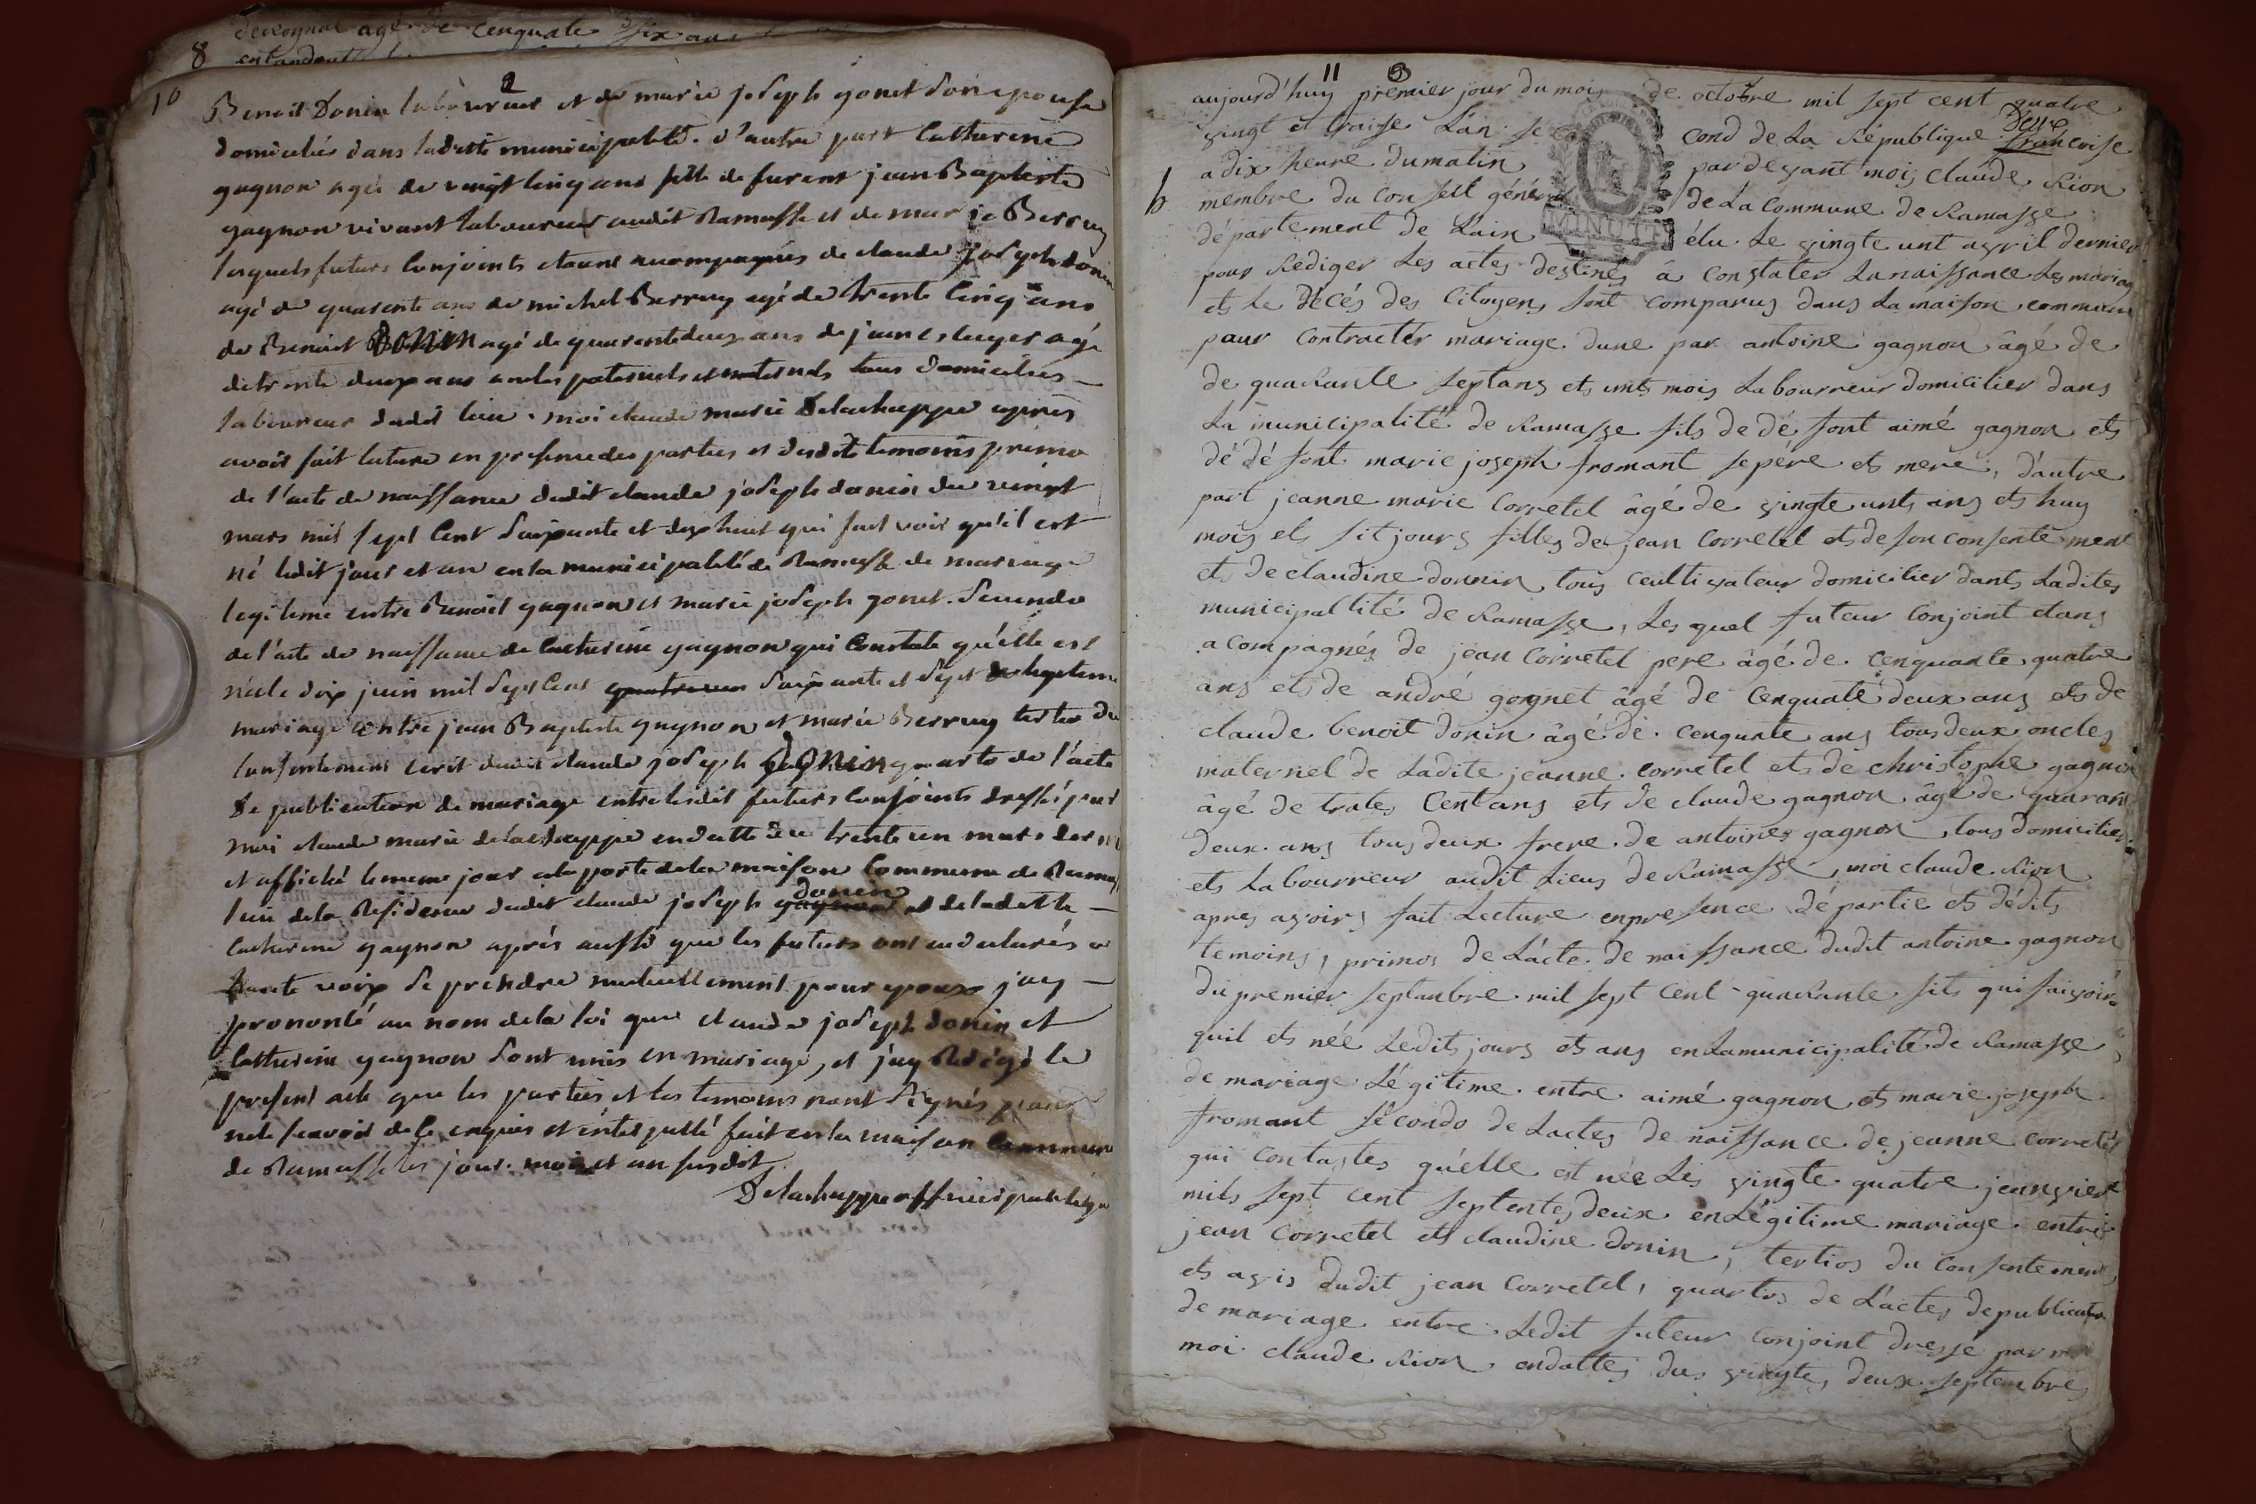 8
âgé de cenquate six an
10
2
Benoit Donin laboureur et de marie joseph gonet son epouse
domiciliés dans laditte municipalité. d'autre part Catherine
gagnon agée de vingt cinq ans fille de furent jean Baptiste
gagnon vivant laboureur audit Ramasse et de marie Berruy
lesquels futurs Conjoints étaient accompagnés de claude joseph donin
agé de quarente ans de michel Berruy agé de trente Cinq ans
de Benoit DONIN agé de quarentedeux ans de jean
detrente deux ans oncles paternels et maternels tous domiciliés
laboureur dudit lieu. moi claude marie Delachappe après
avoir fait lecture en presence des parties et desdits temoins primo
de l'acte de naissance dudit claude joseph donin du vingt
mars mil sept Cent soixante et dix huit qui fait voir qu'il est
né ledit jour et an en la municipalité de Ramasse de mariage
legitime entre Benoit gagnon et marie joseph gonet. Secundo
de l'acte de naissance de Catherine gagnon qui Constate qu'elle est
née le dix juin mil sept Cent quatrevin soixante et sept de legitime
mariage entre jean Baptiste gagnon et marie Berruy tertio du
consentement ecrit dudit claude joseph DONIN quarto de l'acte
de publication de mariage entre lesdits futurs Conjoints dressé par
moi claude marie delachappe en datte du trente un mars dernier
et affiché le meme jour a la porte de la maison Commune de Ramasse
lieu de la Residence dudit claude joseph gagnon donin et de ladette
Catherine gagnon après aussi que les futurs ont eu declarés a
haute voix se prendre mutuellement pour epoux jay
prononcé au nom de la loi que claude joseph donin et
Catherine gagnon sont unis en mariage, et j'ay Redigé le
present acte que les parties et les temoins nont signés pour
ne le scavoir de ce enquis et interpellé fait en la maison Commune
de Ramasse les jour mois et an susdit
Delachappe officier publique
11
3
aujourd'huy premier jour du mois de octobre mil sept cent quatre
vingt et traise Lán second de La République françoise
Deuxe
a dix heure du matin par devant mois claude Rion
b membre du conseil général de La commune de Ramasse
MINUTE
département de Láin élu Le vingte unt avril dernier
pour Rediger Les actes destinés â constater La naissance Les mariag
ets Le décés des Citoyens sont comparus dans La maison commun
pour contracter mariage dune par antoine gagnon âgé de
de quarante septans ets unts mois Labourreur domicilier dans
La municipalité de Ramasse fils de dé font aimé gagnon ets
dé dé font marie joseph fromant se pére ets mere, d'autre
part jeanne marie Corretel âgé de vingte unts ans ets huy
mois ets sit jours filles de jean Corretel ets de son consentement
ets de claudine donnin tous ceultivateur domicilier dants Ladites
municipallité de Ramasse, Les quel futeur conjoint etans
acompagnés de jean Corretel pere âgé de cenquante quatre
ans ets de andré gognet âgé de cenquate deux ans ets de
claude benoit donin âgé de cenquate ans tous deux oncles
maternel de Ladite jeanne corretel ets de christophe gagnon
âgé de trate Cent ans ets de claude gagnon âgé de quarant
deux ans tous deux frere de antoines gagnon, tous domicilier
ets Labourreur audit Lieus de Ramasse, moi claude Rion
apres avoirs fait Lecture en presence dé partie ets dédits
temoins, primos de Lácte de naissance dudit antoine gagnon
du premier septanbre mil sept cent quarante sits qui fai voir
quil ets née Ledits jours ets ans en La municipalité de Ramasse
de mariage Légitime entre aimé gagnon ets marie joseph
fromant sécondo de Lactes de naissance de jeanne corretel
qui contastes qu'elle est née Les vingte quatre jeanvier
mils sept cent septente deux en Légitime mariage entre
jean Corretel ets claudine donin, tertios du consentement
ets avis dudit jean Corretel, quartos de Láctes de publication
de mariage entre Ledit futeur conjoint dressé par moi
moi claude Rion en dattes dus vingtes deux septembre